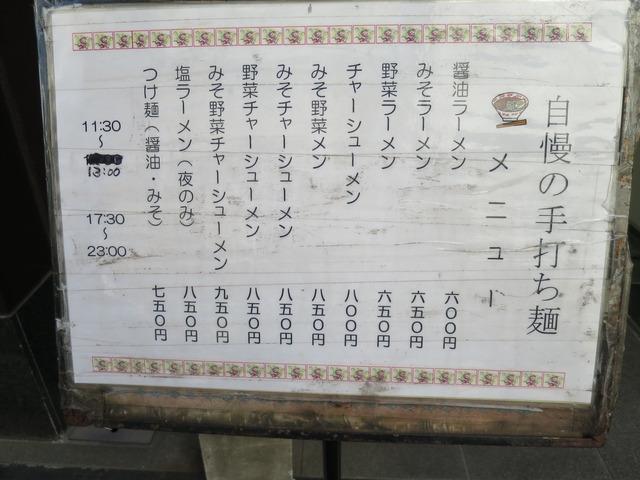 自慢の手打ち麺
メニュー
醤油ラーメン 六〇〇円
みそラーメン 六五〇円
野菜ラーメン 六五〇円
チャーシューメン 八〇〇円
みそ野菜メン 八五〇円
みそチャーシューメン 八五〇円
野菜チャーシューメン 八五〇円
みそ野菜チャーシューメン 九五〇円
塩ラーメン(夜のみ) 八五〇円
つけ麺(醤油・みそ) 七五〇円
11:30
〜
13:00
17:30
〜
23:00